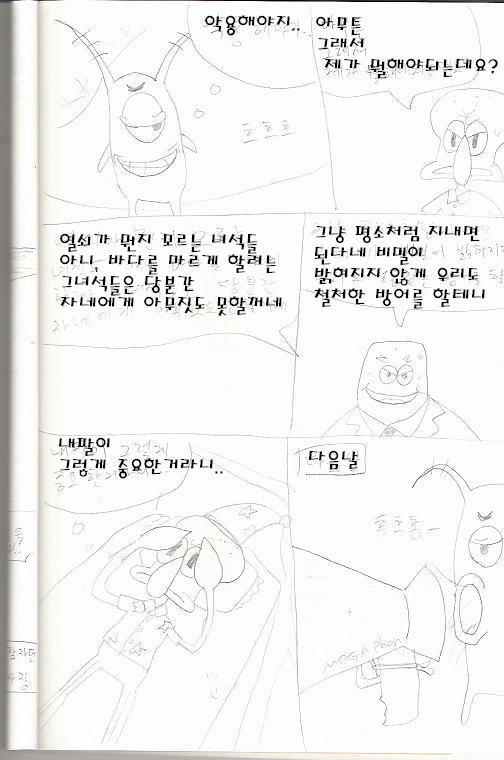 악용해야지..
아무튼
그래서
제가 뭘해야되는데요?
흐흐흐
열쇠가 뭔지 모르는 녀석들
아니, 바다를 마르게 할려는
그녀석들은 당분간
자네에게 아무짓도 못할꺼네
그냥 평소처럼 지내면
된다네 비밀이
밝혀지지 않게 우리도
철처한 방어를 할테니
내팔이
그렇게 중요한거라니..
다음날
MEGAphon